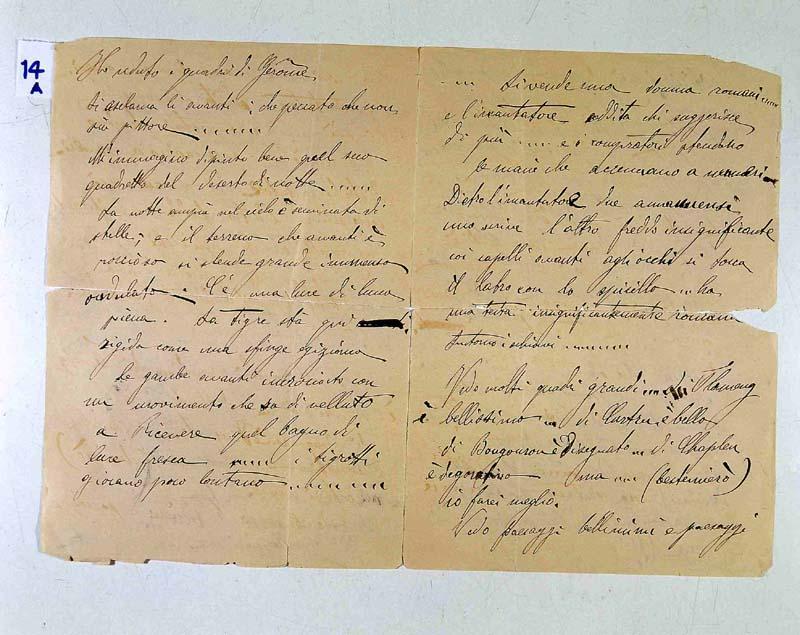 14
A
Ho veduto i quadri di Gérôme
Si esclama lì avanti : che peccato che non
sia pittore ......
M'immagino dipinto bene quel suo
quadretto del deserto di notte .....
La notte ampia nel cielo è seminata di
stelle, e il terreno che avanti è
roccioso si stende grande immenso
ondulato. C'è una luce di luna
piena. La tigre sta qui
rigida come una sfinge egiziana
le gambe avanti incrociate con
un movimento che sa di velluto
a Ricevere quel bagno di
luce fresca ..... i tigrotti
giocano poco lontano ........
.... Si vende una donna romana .....
e l'incantatore addita chi suggerisce
di più .... e i compratori stendono
le mani che accennano a numeri
Dietro l'incantatore due amanuensi
uno scrive l'altro freddo insignificante
coi capelli avanti agli occhi si tocca
il labro con lo spicillo ... ha
una testa insignificantemente romana
Intorno i schiavi ........
Vedo molti quadri grandi ... di Flameng
è bellissimo ... di è bello
di è Disegnato ... di Chaplen
è degorativo ma ... (bestemierò)
io farei meglio.
Vedo paesaggi bellissimi e paesaggi